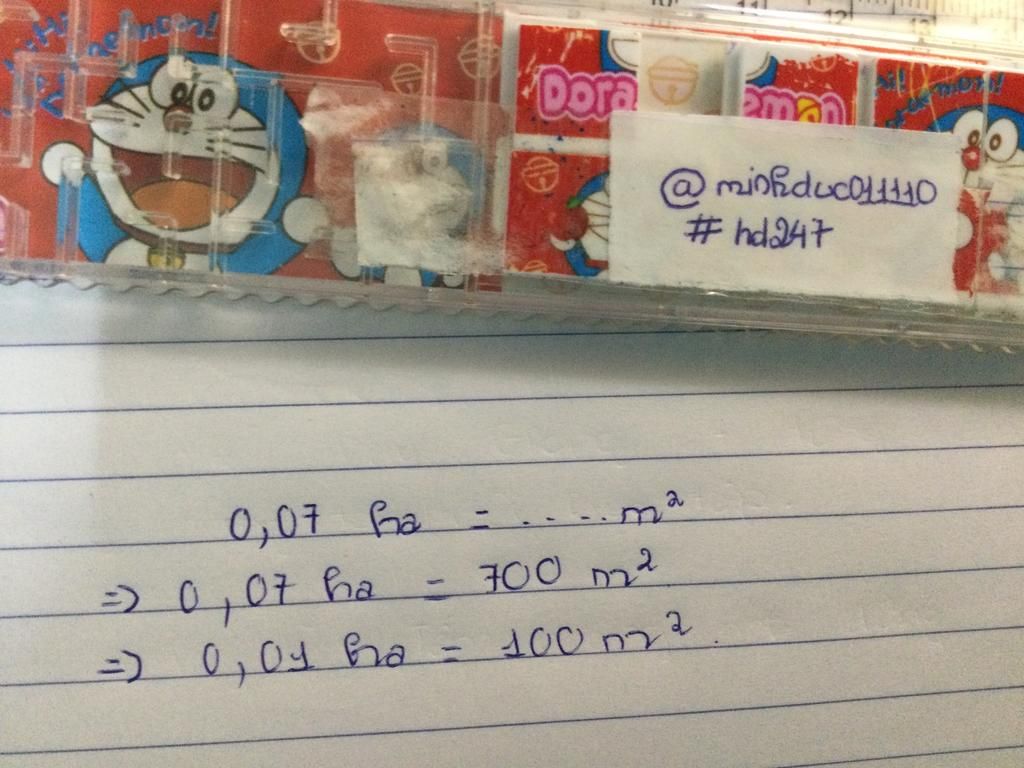 10 11 12 13
Doraemon
@minhduc011110
# hd247
0,07 ha = ..... m²
=> 0,07 ha = 700 m²
=> 0,01 ha = 100 m².